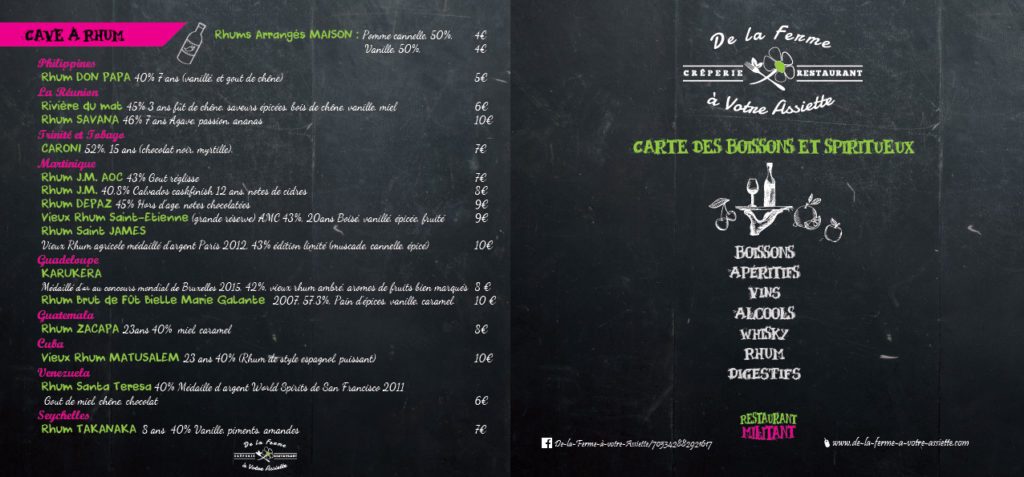 CAVE À RHUM
Rhums Arrangés MAISON : Pomme cannelle, 50%, 4€
Vanille, 50%, 4€
Philippines
Rhum DON PAPA 40% 7 ans (vanillé, et gout de chêne) 5€
La Réunion
Rivière du mat 45% 3 ans fut de chêne, saveurs épicées, bois de chêne, vanille, miel 6€
Rhum SAVANA 46% 7 ans Agave, passion, ananas 10€
Trinité et Tobago
CARONI 52%, 15 ans (chocolat noir, myrtille), 7€
Martinique
Rhum J.M. AOC 43% Gout réglisse 7€
Rhum J.M. 40.8% Calvados caskfinish 12 ans, notes de cidres 8€
Rhum DEPAZ 45% Hors d'age, notes chocolatées 9€
Vieux Rhum Saint-Etienne (grande réserve) AMC 43%, 20ans Boisé, vanillé, épicée, fruité 9€
Rhum Saint JAMES
Vieux Rhum agricole médaillé d'argent Paris 2012, 43% édition limité (muscade, cannelle, épice) 10€
Guadeloupe
KARUKERA
Médaillé d'or au concours mondial de Bruxelles 2015, 42%, vieux rhum ambré, aromes de fruits bien marqués 8 €
Rhum Brut de Fût Bielle Marie Galante 2007, 57.3%, Pain d'épices, vanille, caramel 10 €
Guatemala
Rhum ZACAPA 23ans 40% miel, caramel 8€
Cuba
Vieux Rhum MATUSALEM 23 ans 40% (Rhum de style espagnol, puissant) 10€
Venezuela
Rhum Santa Teresa 40% Médaille d'argent World Spirits de San Francisco 2011
Gout de miel, chêne, chocolat 6€
Seychelles
Rhum TAKANAKA 8 ans, 40% Vanille, piments, amandes 7€
De la Ferme
CRÊPERIE RESTAURANT
à Votre Assiette
De la Ferme
CRÊPERIE RESTAURANT
à Votre Assiette
CARTE DES BOISSONS ET SPIRITUEUX
BOISSONS
APÉRITIFS
VINS
ALCOOLS
WHISKY
RHUM
DIGESTIFS
RESTAURANT
MILITANT
De-la-Ferme-à-votre-Assiette/705342882921617
www.de-la-ferme-a-votre-assiette.com